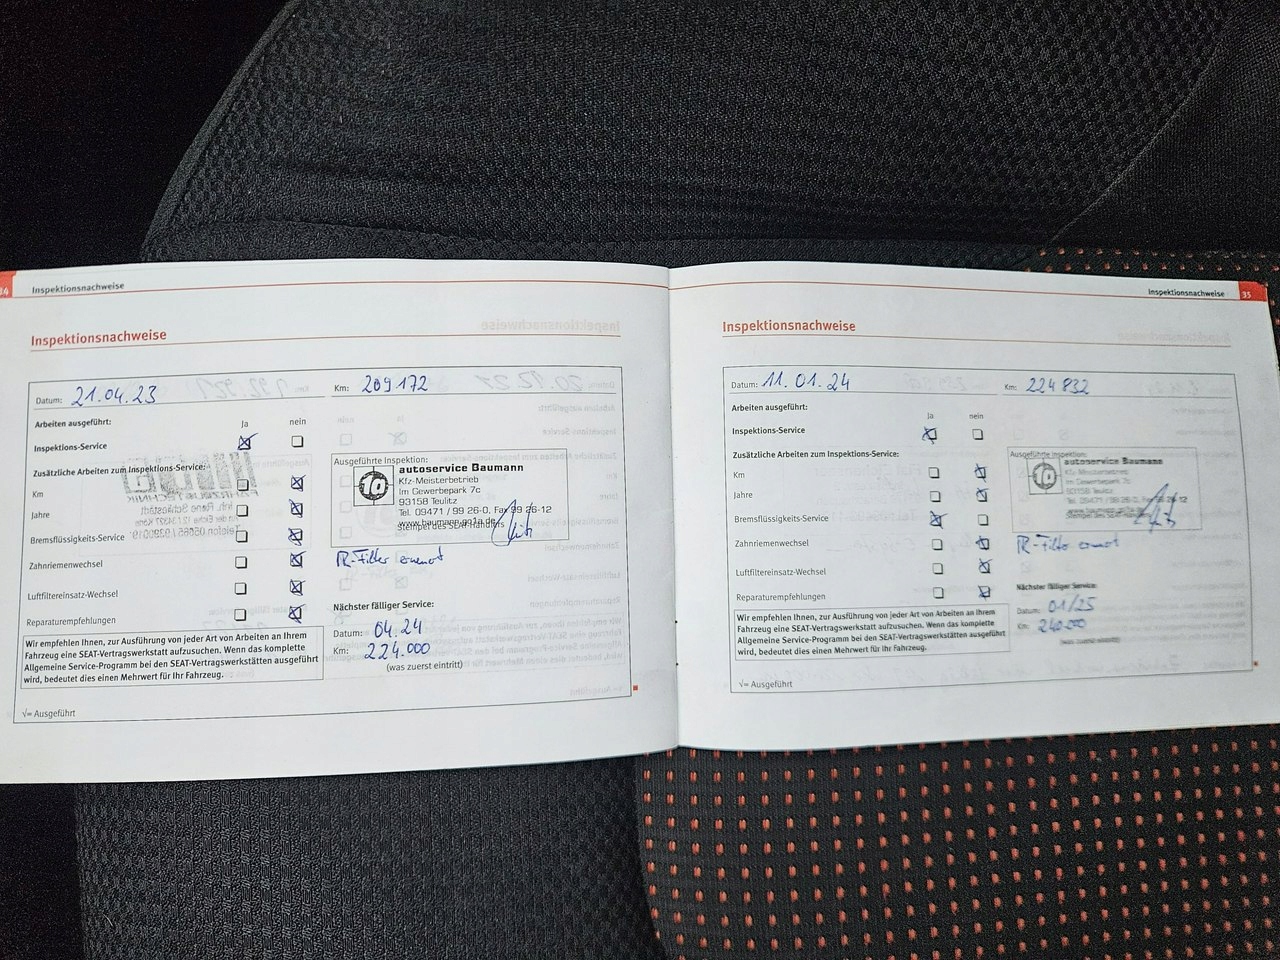 34 Inspektionsnachweise
Inspektionsnachweise
Datum: 21.04.23 Km: 209 172
Arbeiten ausgeführt: Ja nein
Inspektions-Service
Zusätzliche Arbeiten zum Inspektions-Service:
Km
Jahre
Bremsflüssigkeits-Service
Zahnriemenwechsel
Luftfiltereinsatz-Wechsel
Reparaturempfehlungen
Wir empfehlen Ihnen, zur Ausführung von jeder Art von Arbeiten an Ihrem
Fahrzeug eine SEAT-Vertragswerkstatt aufzusuchen. Wenn das komplette
Allgemeine Service-Programm bei den SEAT-Vertragswerkstätten ausgeführt
wird, bedeutet dies einen Mehrwert für Ihr Fahrzeug.
√= Ausgeführt
Ausgeführte Inspektion:
autoservice Baumann
Kfz-Meisterbetrieb
Im Gewerbepark 7c
93158 Teulitz
Tel. 09471 / 99 26-0, Fax 99 26-12
Stempel des SEAT-Händlers
PR-Filter erneuert
Nächster fälliger Service:
Datum: 04.24
Km: 224.000
(was zuerst eintritt)
Inspektionsnachweise 35
Inspektionsnachweise
Datum: 11.01.24 Km: 224 832
Arbeiten ausgeführt: Ja nein
Inspektions-Service
Zusätzliche Arbeiten zum Inspektions-Service:
Km
Jahre
Bremsflüssigkeits-Service
Zahnriemenwechsel
Luftfiltereinsatz-Wechsel
Reparaturempfehlungen
Wir empfehlen Ihnen, zur Ausführung von jeder Art von Arbeiten an Ihrem
Fahrzeug eine SEAT-Vertragswerkstatt aufzusuchen. Wenn das komplette
Allgemeine Service-Programm bei den SEAT-Vertragswerkstätten ausgeführt
wird, bedeutet dies einen Mehrwert für Ihr Fahrzeug.
√= Ausgeführt
Ausgeführte Inspektion:
autoservice Baumann
Kfz Meisterbetrieb
Im Gewerbepark 7c
93158 Teulitz
Tel. 09471 / 99 26-0, Fax 99 26 12
Stempel des SEAT-Händlers
PR-Filter erneuert
Nächster fälliger Service:
Datum: 01/25
Km: 240.000
(was zuerst eintritt)